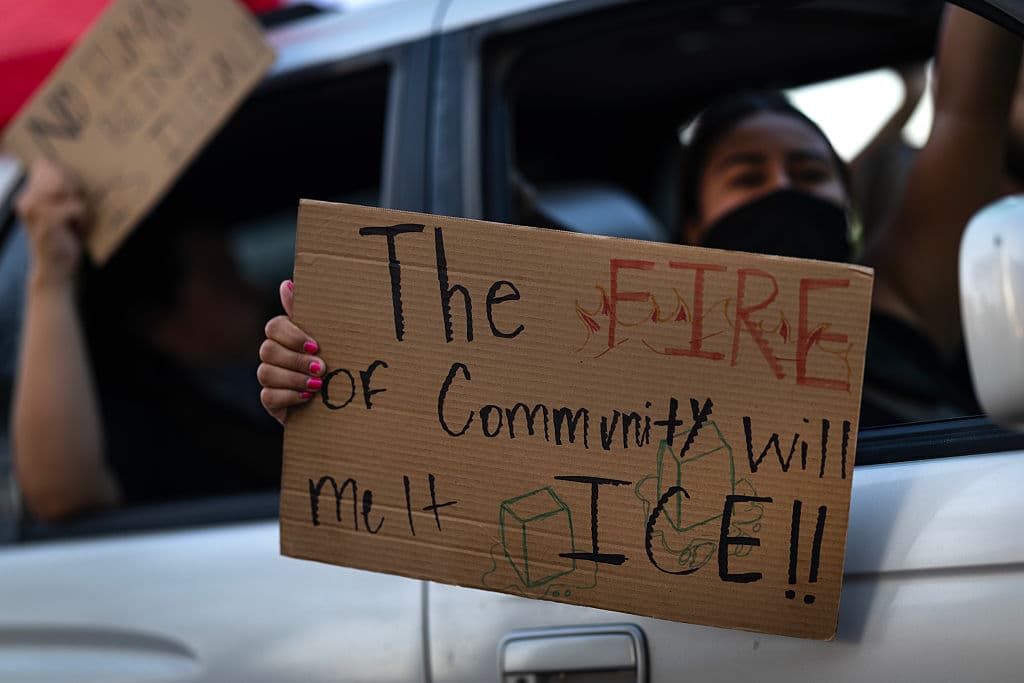 NO HUMAN
BEING IS
ILLEGAL
The FIRE
OF Community Will
melt ICE!!